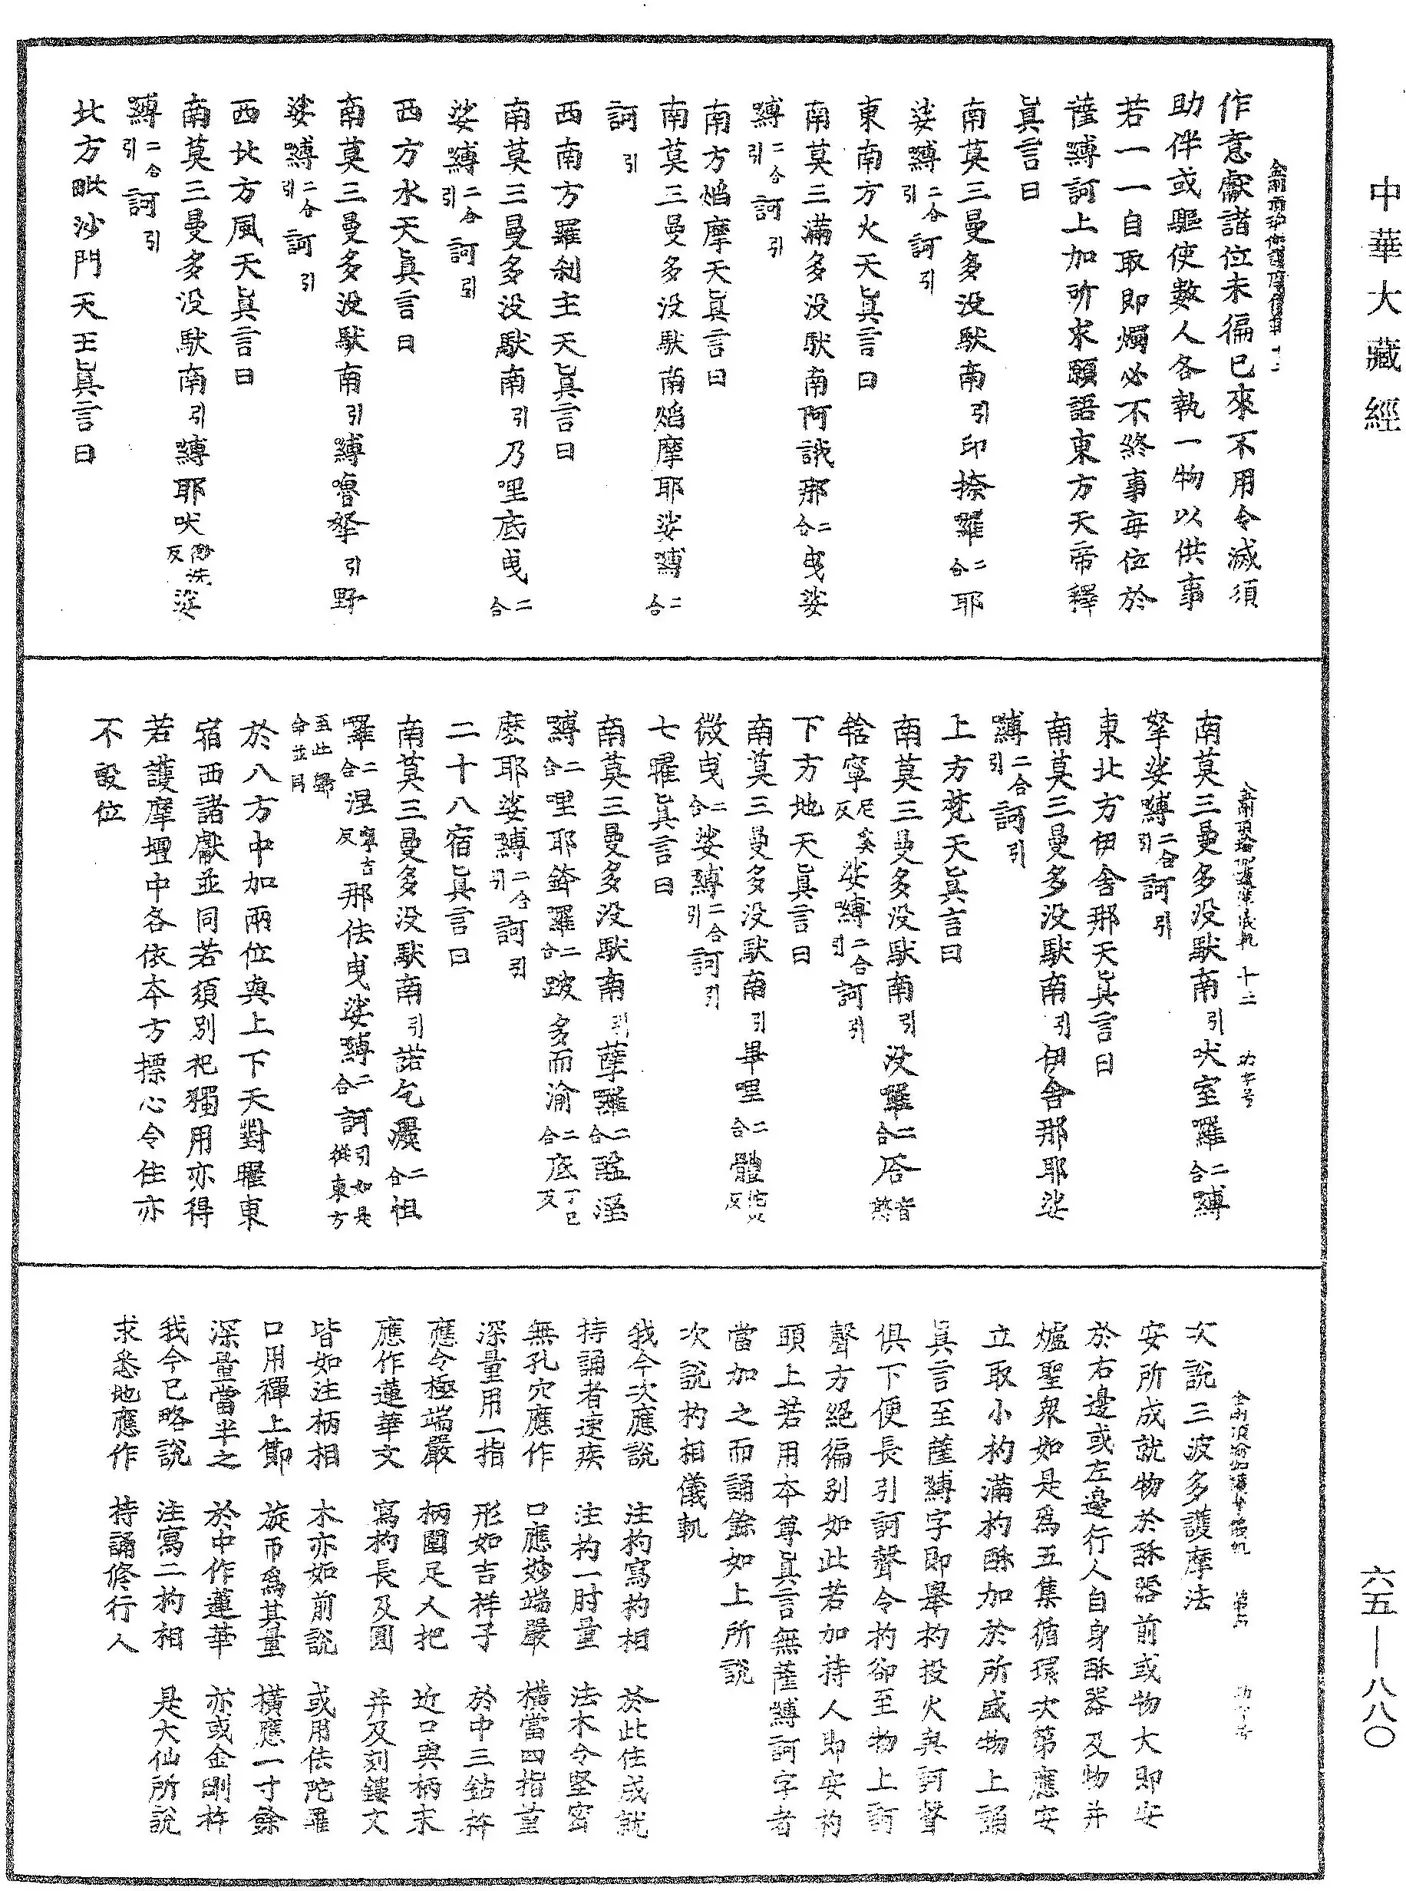 中華大藏經
作意獻諸位未徧已來不用令滅須
助伴或驅使數人各執一物以供事
若一一自取即燭必不終事每位於
薩縛訶上加所求願語東方天帝釋
真言曰
南莫三曼多没馱南引印捺羅二合耶
娑縛二合引訶引
東南方火天真言曰
南莫三滿多没馱南阿誐那二合曳娑
縛二合引訶引
南方焰摩天真言曰
南莫三曼多没馱南焰摩耶娑縛二合
訶引
西南方羅刹主天真言曰
南莫三曼多没馱南引乃哩底曳二合
娑縛二合引訶引
西方水天真言曰
南莫三曼多没馱南引縛嚕拏引野
娑縛二合引訶引
西北方風天真言曰
南莫三曼多没馱南引縛耶吠微洗反娑
縛二合引訶引
北方毗沙門天王真言曰
南莫三曼多没馱南引吠室羅二合縛
拏娑縛二合引訶引
東北方伊舍那天真言曰
南莫三曼多没馱南引伊舍那耶娑
縛二合引訶引
上方梵天真言曰
南莫三曼多没馱南引没羅二合
寧娑縛二合引訶引
下方地天真言曰
南莫三曼多没馱南引畢哩二合體
微曳二合娑縛二合引訶引
七曜真言曰
南莫三曼多没馱南引孽羅二合醯溼
縛二合哩耶鉢羅二合跛多而渝二合底丁已反
麼耶娑縛二合引訶引
二十八宿真言曰
南莫三曼多没馱南引諾乞灑二合怛
羅二合涅寧吉反那佉曳娑縛二合訶引如是從東方
至此歸命並同
於八方中加兩位與上下天對曜東
宿西諸獻並同若須別祀獨用亦得
若護摩壇中各依本方摽心令住亦
不設位
次說三波多護摩法
安所成就物於酥器前或物大即安
於右邊或左邊行人自身酥器及物并
爐聖衆如是爲五集循環次第應安
立取小杓滿杓酥加於所盛物上誦
真言至薩縛字即舉杓投火與訶聲
俱下便長引訶聲令杓卻至物上訶
聲方絕徧別如此若加持人即安杓
頭上若用本尊真言無薩縛訶字者
當加之而誦餘如上所說
次說杓相儀軌
我今次應說 注杓寫杓相 於此住成就
持誦者速疾 注杓一肘量 法木令堅密
無孔穴應作 口應妙端嚴 橫當四指量
深量用一指 形如吉祥子 於中三鈷杵
應令極端嚴 柄圍足人把 近口與柄末
應作蓮華文 寫杓長及圓 并及刻鏤文
皆如注柄相 木亦如前說 或用佉陀羅
口用禪上節 旋帀爲其量 橫應一寸餘
深量當半之 於中作蓮華 亦或金剛杵
我今已略說 注寫二杓相 是大仙所說
求悉地應作 持誦修行人
六五—八八〇